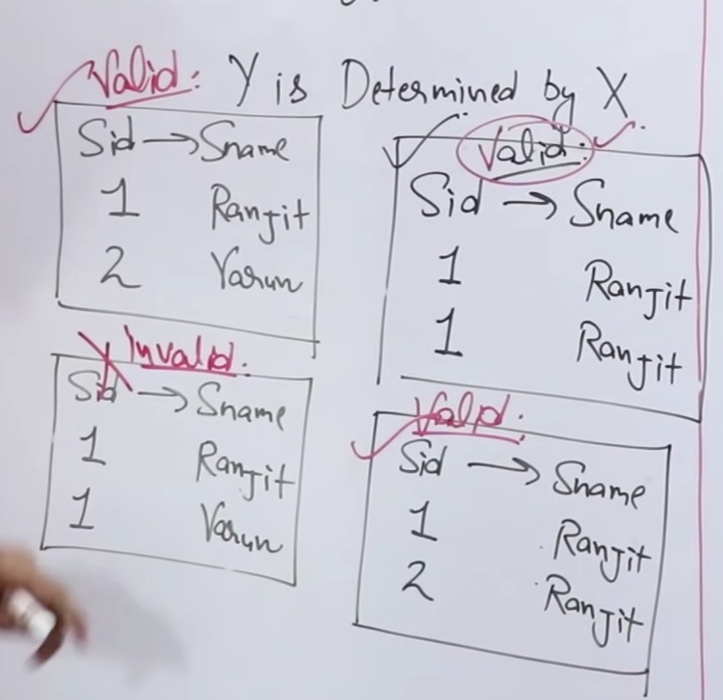 Valid: Y is Determined by X
Sid → Sname
1 Ranjit
2 Varun
Valid:
Sid → Sname
1 Ranjit
1 Ranjit
Invalid.
Sid → Sname
1 Ranjit
1 Varun
Valid:
Sid → Sname
1 Ranjit
2 Ranjit